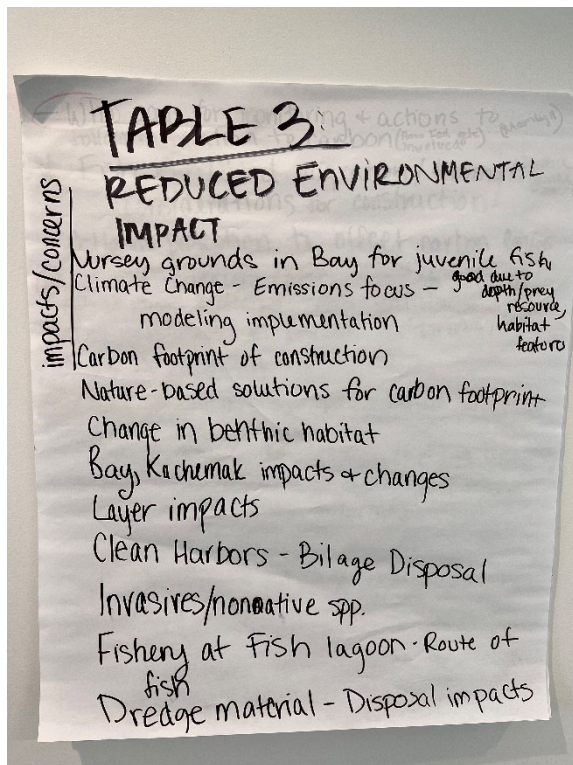 TABLE 3
REDUCED ENVIRONMENTAL
IMPACT
impacts/concerns
Nursey grounds in Bay for juvenile fish,
good due to
depth/prey
resource,
habitat
features
Climate Change - Emissions focus -
modeling implementation
Carbon footprint of construction
Nature-based solutions for carbon footprint
Change in benthic habitat
Bay, Kachemak impacts & changes
Layer impacts
Clean Harbors - Bilage Disposal
Invasives/nonnative spp.
Fishery at Fish lagoon - Route of
fish
Dredge material - Disposal impacts